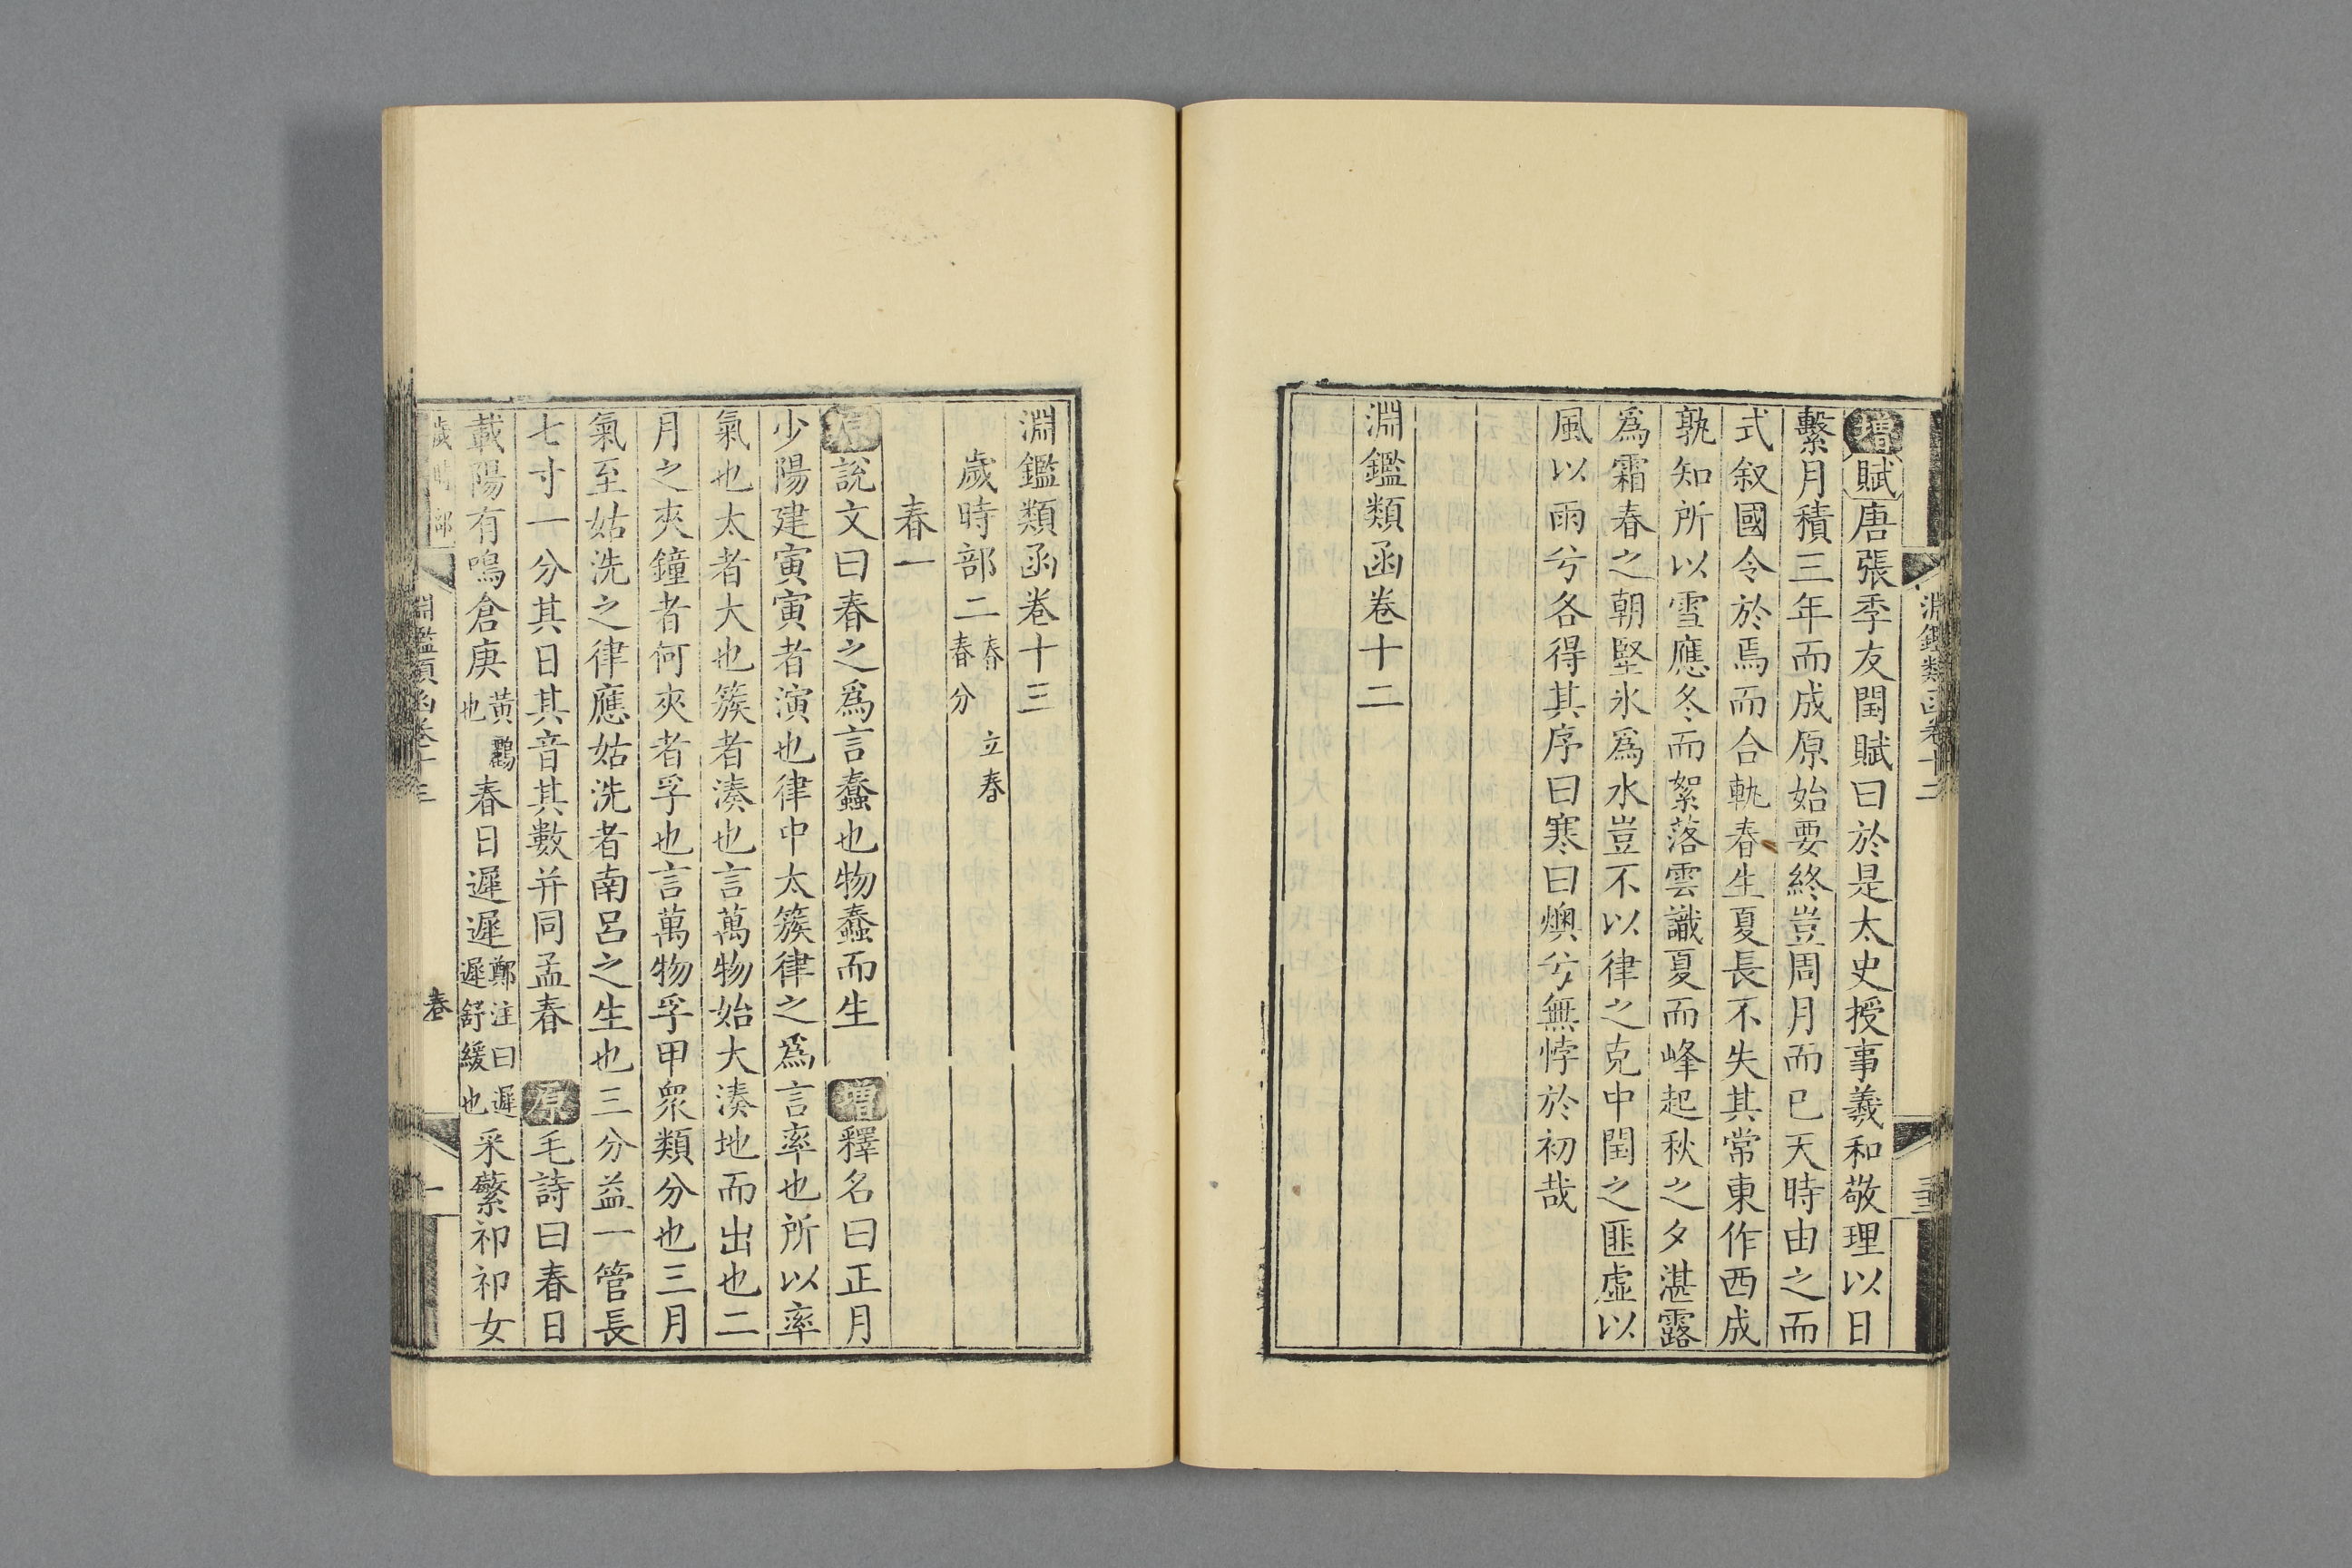 增賦唐張季友閏賦曰於是太史授事羲和敬理以日
繫月積三年而成原始要終豈周月而已天時由之而
式叙國令於焉而合軌春生夏長不失其常東作西成
孰知所以雪應冬而絮落雲識夏而峰起秋之夕湛露
爲霜春之朝堅氷爲水豈不以律之克中閏之匪虛以
風以雨兮各得其序曰寒曰燠兮無悖於初哉
淵鑑類函卷十二
淵鑑類函卷十三
歲時部二春 立春 春分
春一
原說文曰春之爲言蠢也物蠢而生 增釋名曰正月
少陽建寅寅者演也律中太簇律之爲言率也所以率
氣也太者大也簇者湊也言萬物始大湊地而出也二
月之夾鐘者何夾者孚也言萬物孚甲衆類分也三月
氣至姑洗之律應姑洗者南呂之生也三分益一管長
七寸一分其日其音其數并同孟春 原毛詩曰春日
載陽有鳴倉庚黃鸝也春日遲遲鄭注曰遲遲舒緩也采蘩祁祁女
歲時部 淵鑑類函卷十三 春 一